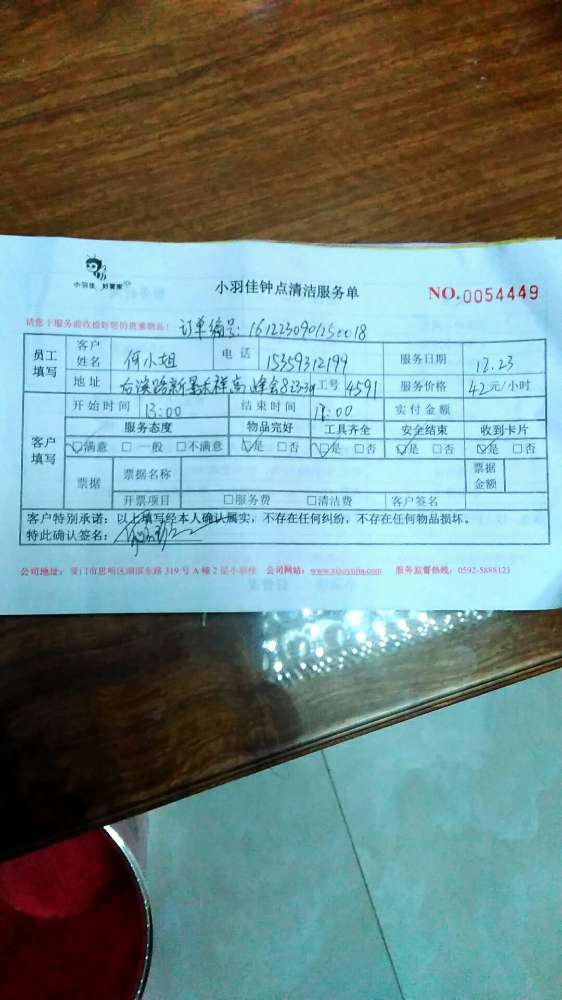 小羽佳 好管家
小羽佳钟点清洁服务单
NO.0054449
请您于服务前收捡好您的贵重物品!
订单编号:
员工填写
客户姓名 何小姐 电话 15359312199 服务日期 12.23
地址 工号 4591 服务价格 42元/小时
客户填写
开始时间 13:00 结束时间 18:00 实付金额
服务态度 物品完好 工具齐全 安全结束 收到卡片
☑满意 □一般 □不满意 ☑是 □否 ☑是 □否 ☑是 □否 ☑是 □否
票据 票据名称 票据金额
开票项目 □服务费 □清洁费 客户签名
客户特别承诺:以上填写经本人确认属实,不存在任何纠纷,不存在任何物品损坏。
特此确认签名:
公司地址:厦门市思明区湖滨东路319号A幢2层小羽佳 公司网站:www.xiaoyujia.com 服务监督热线:0592-5888123